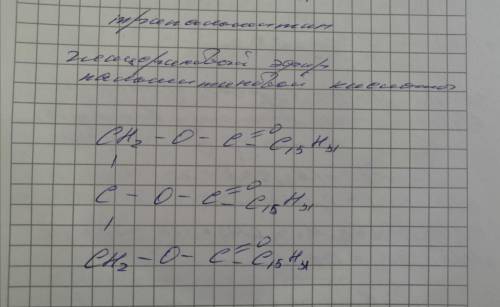 трипальмитин
глицериновый эфир
пальмитиновой кислоты
CH₂ - O - C =O - C₁₅H₃₁
|
C - O - C =O - C₁₅H₃₁
|
CH₂ - O - C =O - C₁₅H₃₁